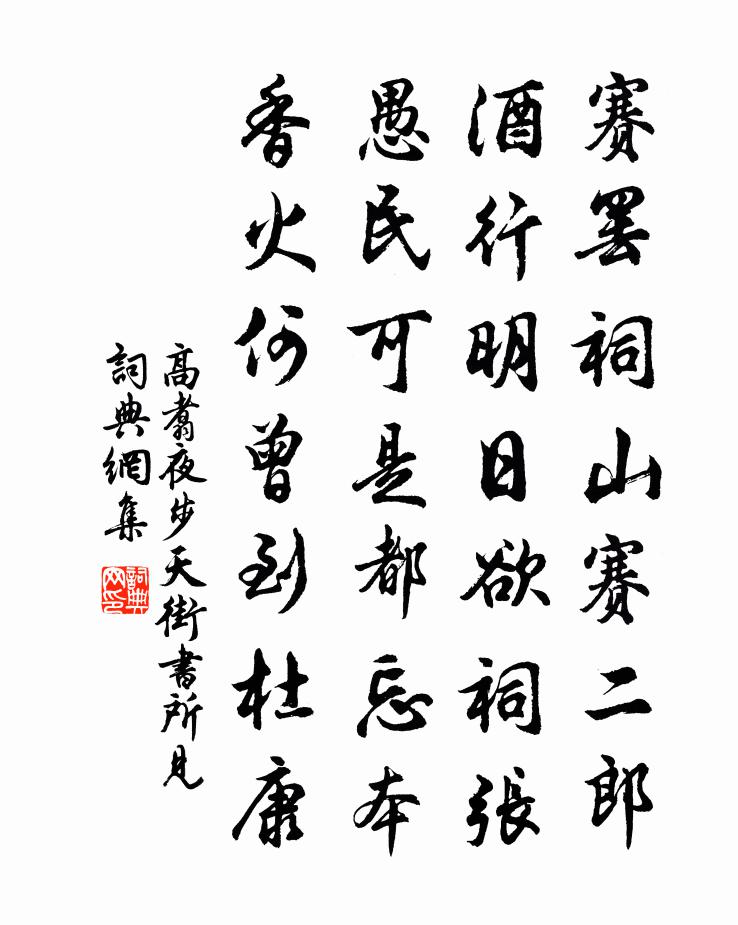 賽罷祠山賽二郎
酒行明日欲祠張
愚民可是都忘本
香火何曾到杜康
高翥夜步天街書所見
詞典網集
詞典网印